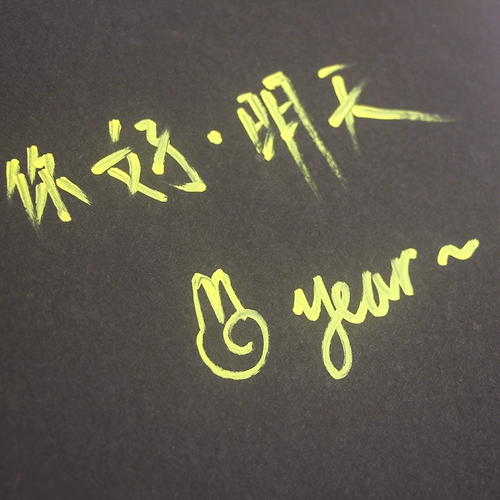 你好·明天
year~